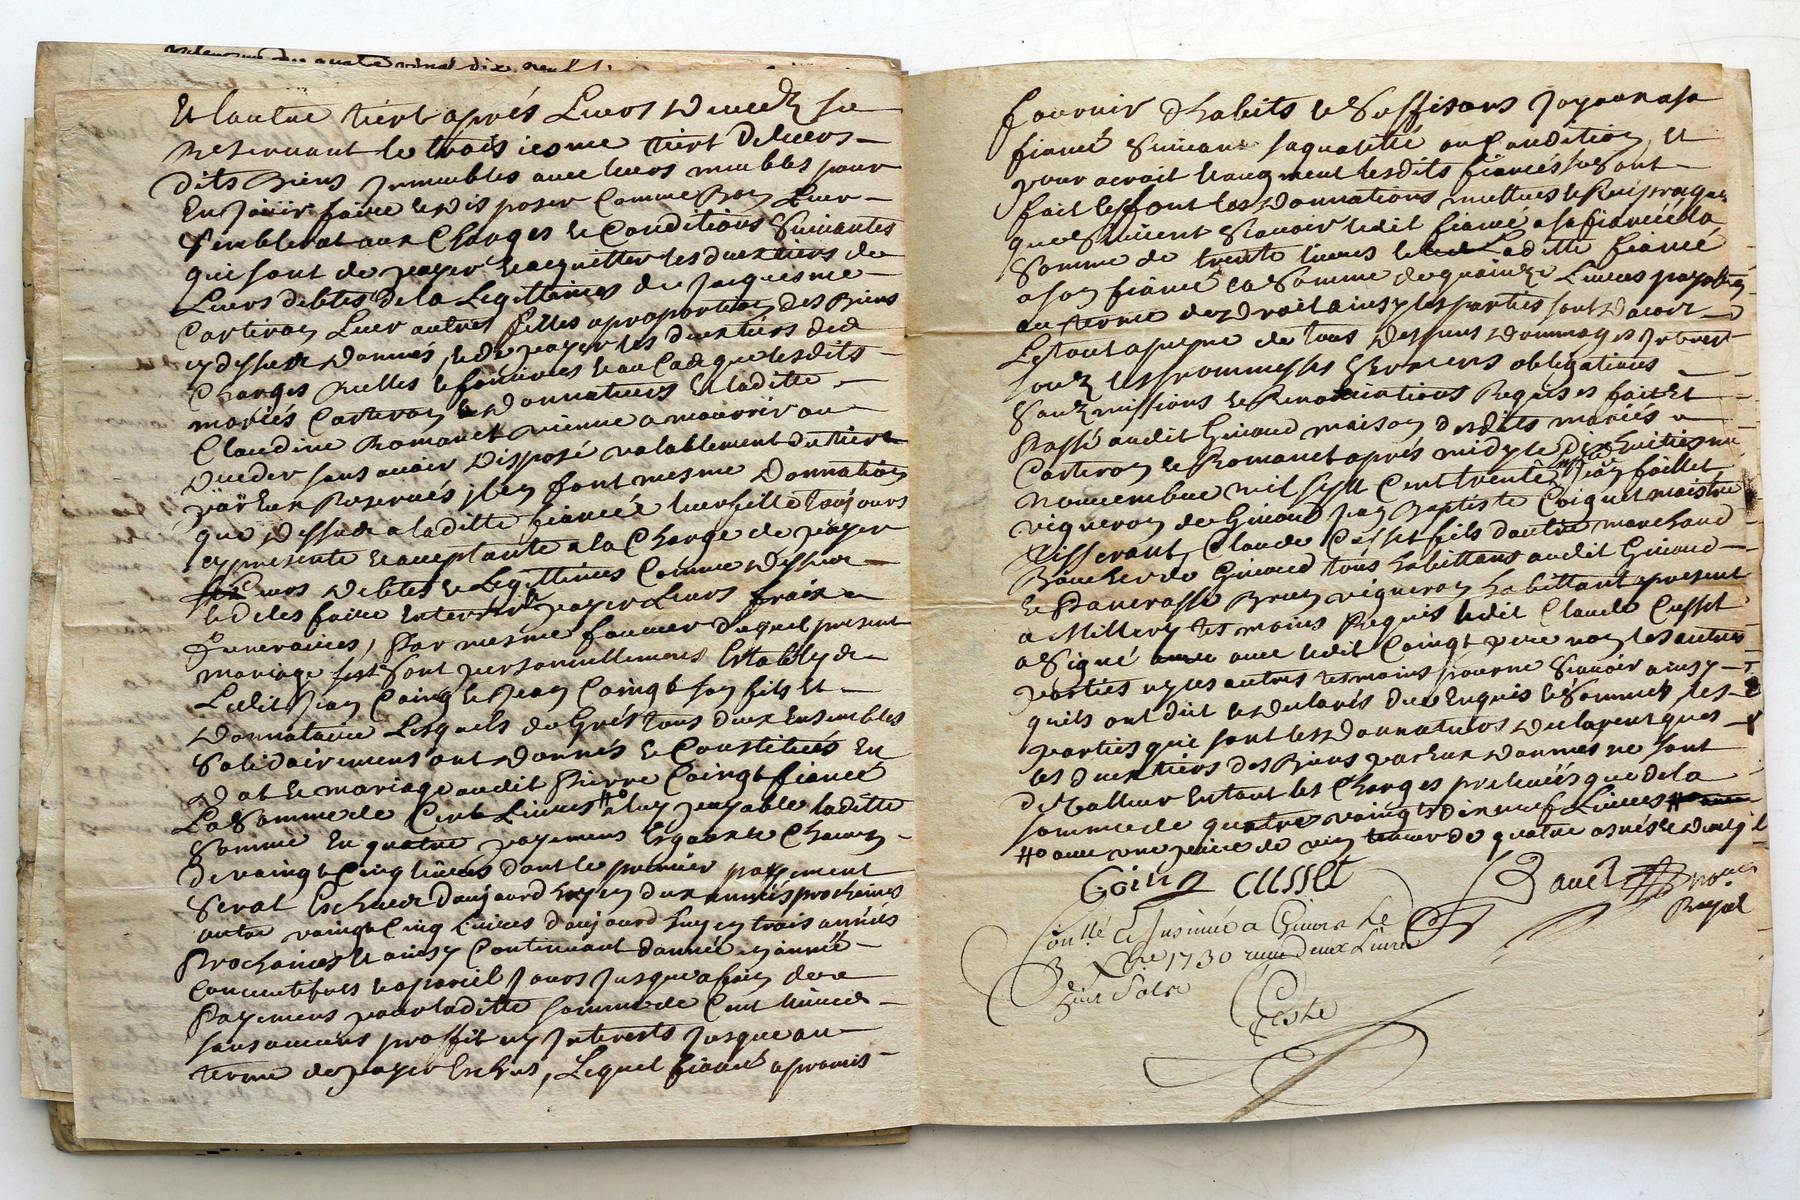 quatre vingt dix neuf
Et lautre tiert aprés Leurs Deceds se
Reservant le trois iesme tiert deleurs
dits Biens Jmmeubles avec leurs meubles pour
En Joüir faire & dis poser Comme Bon Leur
Semblerat aux Charges & Conditions Suivantes
qui sont de payer & acquitter les deux tiers de
Leurs debtes de la Legittimes de Jacquesme
Carteron Leur autres filles a proportion des Biens
cy dessus Donnés, & de payer les deux tiers des
Charges Reelles & foncieres & au Cas que lesdits
mariés Carteron & Donnateurs & laditte
Claudine Romanet vienne a mourrir ou
deceder sans avoir Disposé valablement du tiers
par Eux Reservés jls en font mesme Donnation
que dessus a laditte fiancée leur fille toujours
cy presente & acceptante a la Charge de payer
Leurs debtes & Legittimes Comme dessus
& de les faire Enterrer & payer Leurs frais
funeraires, Par mesme faveur duquel present
mariage se sont personnellement Establys
Ledit Jean Coing & Jean Coingt son fils Et
Donnataire Lesquels de Grés tous deux Ensembles
Solidairement ont donnés & Constitués En
Dot & mariage audit Pierre Coingt fiancé
La Somme de Cent Livres a luy payable laditte
Somme En quatre payemens Esgaux & Chacun
de vaingt Cinq livres dont le premier payement
Serat Escheut daujourdhuy en deux années prochaines
autre vaingt Cinq Livres daujourdhuy en trois années
Prochaines & ainsy Continuant dannée en année
Concecutives & apareil Jours Jusque a fin de
Payemens pour laditte somme de Cent livres
sans aucuns proffit ny Jnterests Jusque au
terme de payer Escheus, Lequel fiancé a promis
fournir dhabits & Suffisans Joyaux a sa
fiancé Suivant sa qualité ou Condition, Et
pour acroit & augment lesdits fiancés se Sont
fait & font les Donnations mutues & Reciproques
que Suivent Scavoir ledit fiancé a sa fiancée la
Somme de trente livres & Laditte fiancé
a son fiancé la Somme de quainze Livres payables
au terme de Droit ainsy les parties sont daccord
Le tout a peyne de tous Despens Dommages Jnterest
souz les promesses Sermens obligations
Souzmissions & Renonciations Requises fait Et
Passé audit Givord maison desdits mariés
Carteron & Romanet aprés midy le dix huitiesme
Novembre mil sept Cent trente Jean faillet
vigneron de Givord Jean Baptiste Coignet maistre
Tisserant, Claude Cusset fils dautre marchand
Boucher de Givord tous habittans audit Givord
& Pancrasse Brun vigneron habittant a present
a Millery tesmoins Requis ledit Claude Cusset
a Signé avec ledit Coingt pere non les autres
parties ny les autres tesmoins pour ne Scavoir ainsy
quils ont dit & Declarés de ce Enquis & Sommés, les
parties qui sont les Donnateurs Declarent que
les deux tiers des Biens par Eux Donnés ne sont
de Valleur Estant les Charges prelevées que de la
somme de quatre vaingts dix neuf Livres
avec une piece de vin
Coing Cusset
Royal
Contllé & Jnsinué a Givors Le
xbre 1730 receu deux Livres
huit Sols